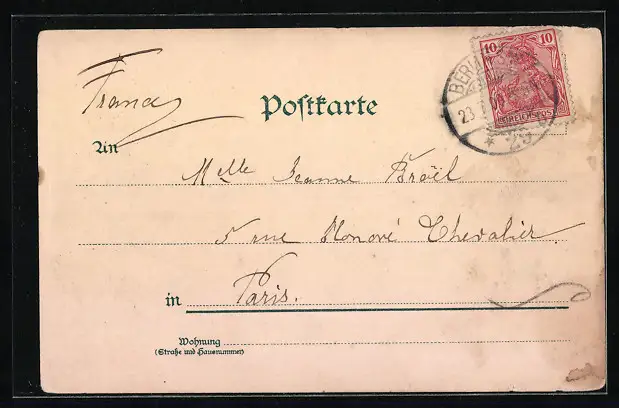 France
Postkarte
10 10
BERLIN
REICHSPOST
23
* 25
An
Melle Jeanne Broël
5 rue Honoré Chevalier
in Paris.
Wohnung
(Straße und Hausnummer)